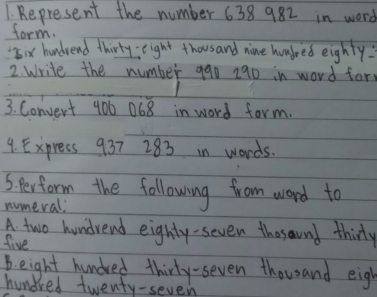 1. Represent the number 638 982 in word
form.
Six hundrend thirty-eight thousand nine hundred eighty-
2. Write the number 990 290 in word for
3. Convert 400 068 in word form.
4. Express 937 283 in words.
5. Perform the following from word to
numeral:
A. two hundrend eighty-seven thosaund thirty
five
B. eight hundred thirty-seven thousand eigh
hundred twenty-seven